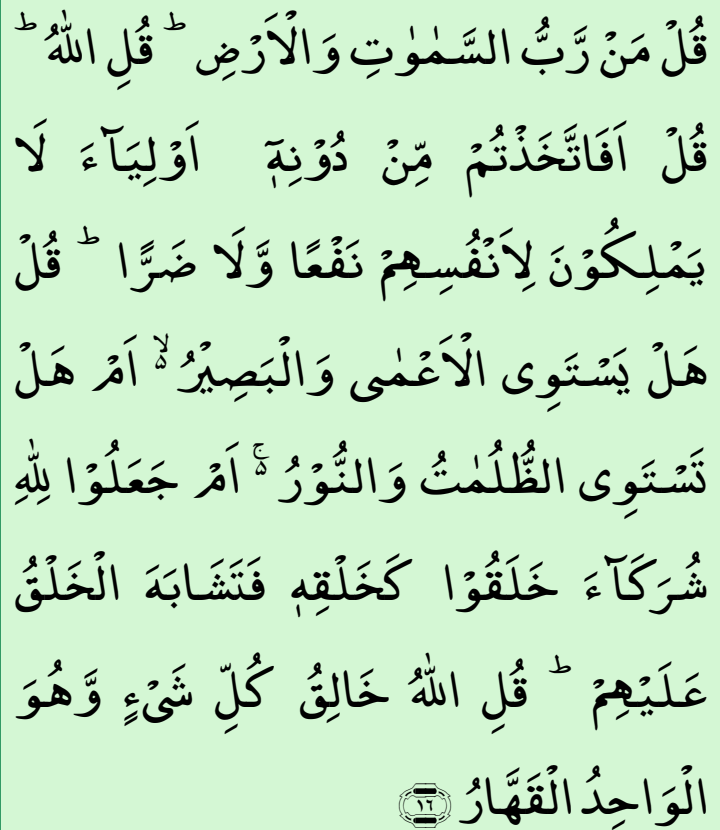 قُلۡ مَنۡ رَّبُّ السَّمٰوٰتِ وَالۡاَرۡضِ ؕ قُلِ اللّٰهُ‌ ؕ
قُلۡ اَفَاتَّخَذۡتُمۡ مِّنۡ دُوۡنِهٖۤ اَوۡلِيَآءَ لَا
يَمۡلِكُوۡنَ لِاَنۡفُسِهِمۡ نَفۡعًا وَّلَا ضَرًّا‌ ؕ قُلۡ
هَلۡ يَسۡتَوِى الۡاَعۡمٰى وَالۡبَصِيۡرُ ۙ۬ اَمۡ هَلۡ
تَسۡتَوِى الظُّلُمٰتُ وَالنُّوۡرُ ۚ۬ اَمۡ جَعَلُوۡا لِلّٰهِ
شُرَكَآءَ خَلَقُوۡا كَخَلۡقِهٖ فَتَشَابَهَ الۡخَلۡقُ
عَلَيۡهِمۡ‌ ؕ قُلِ اللّٰهُ خَالِقُ كُلِّ شَىۡءٍ وَّهُوَ
الۡوَاحِدُ الۡقَهَّارُ ﴿۱۶﴾